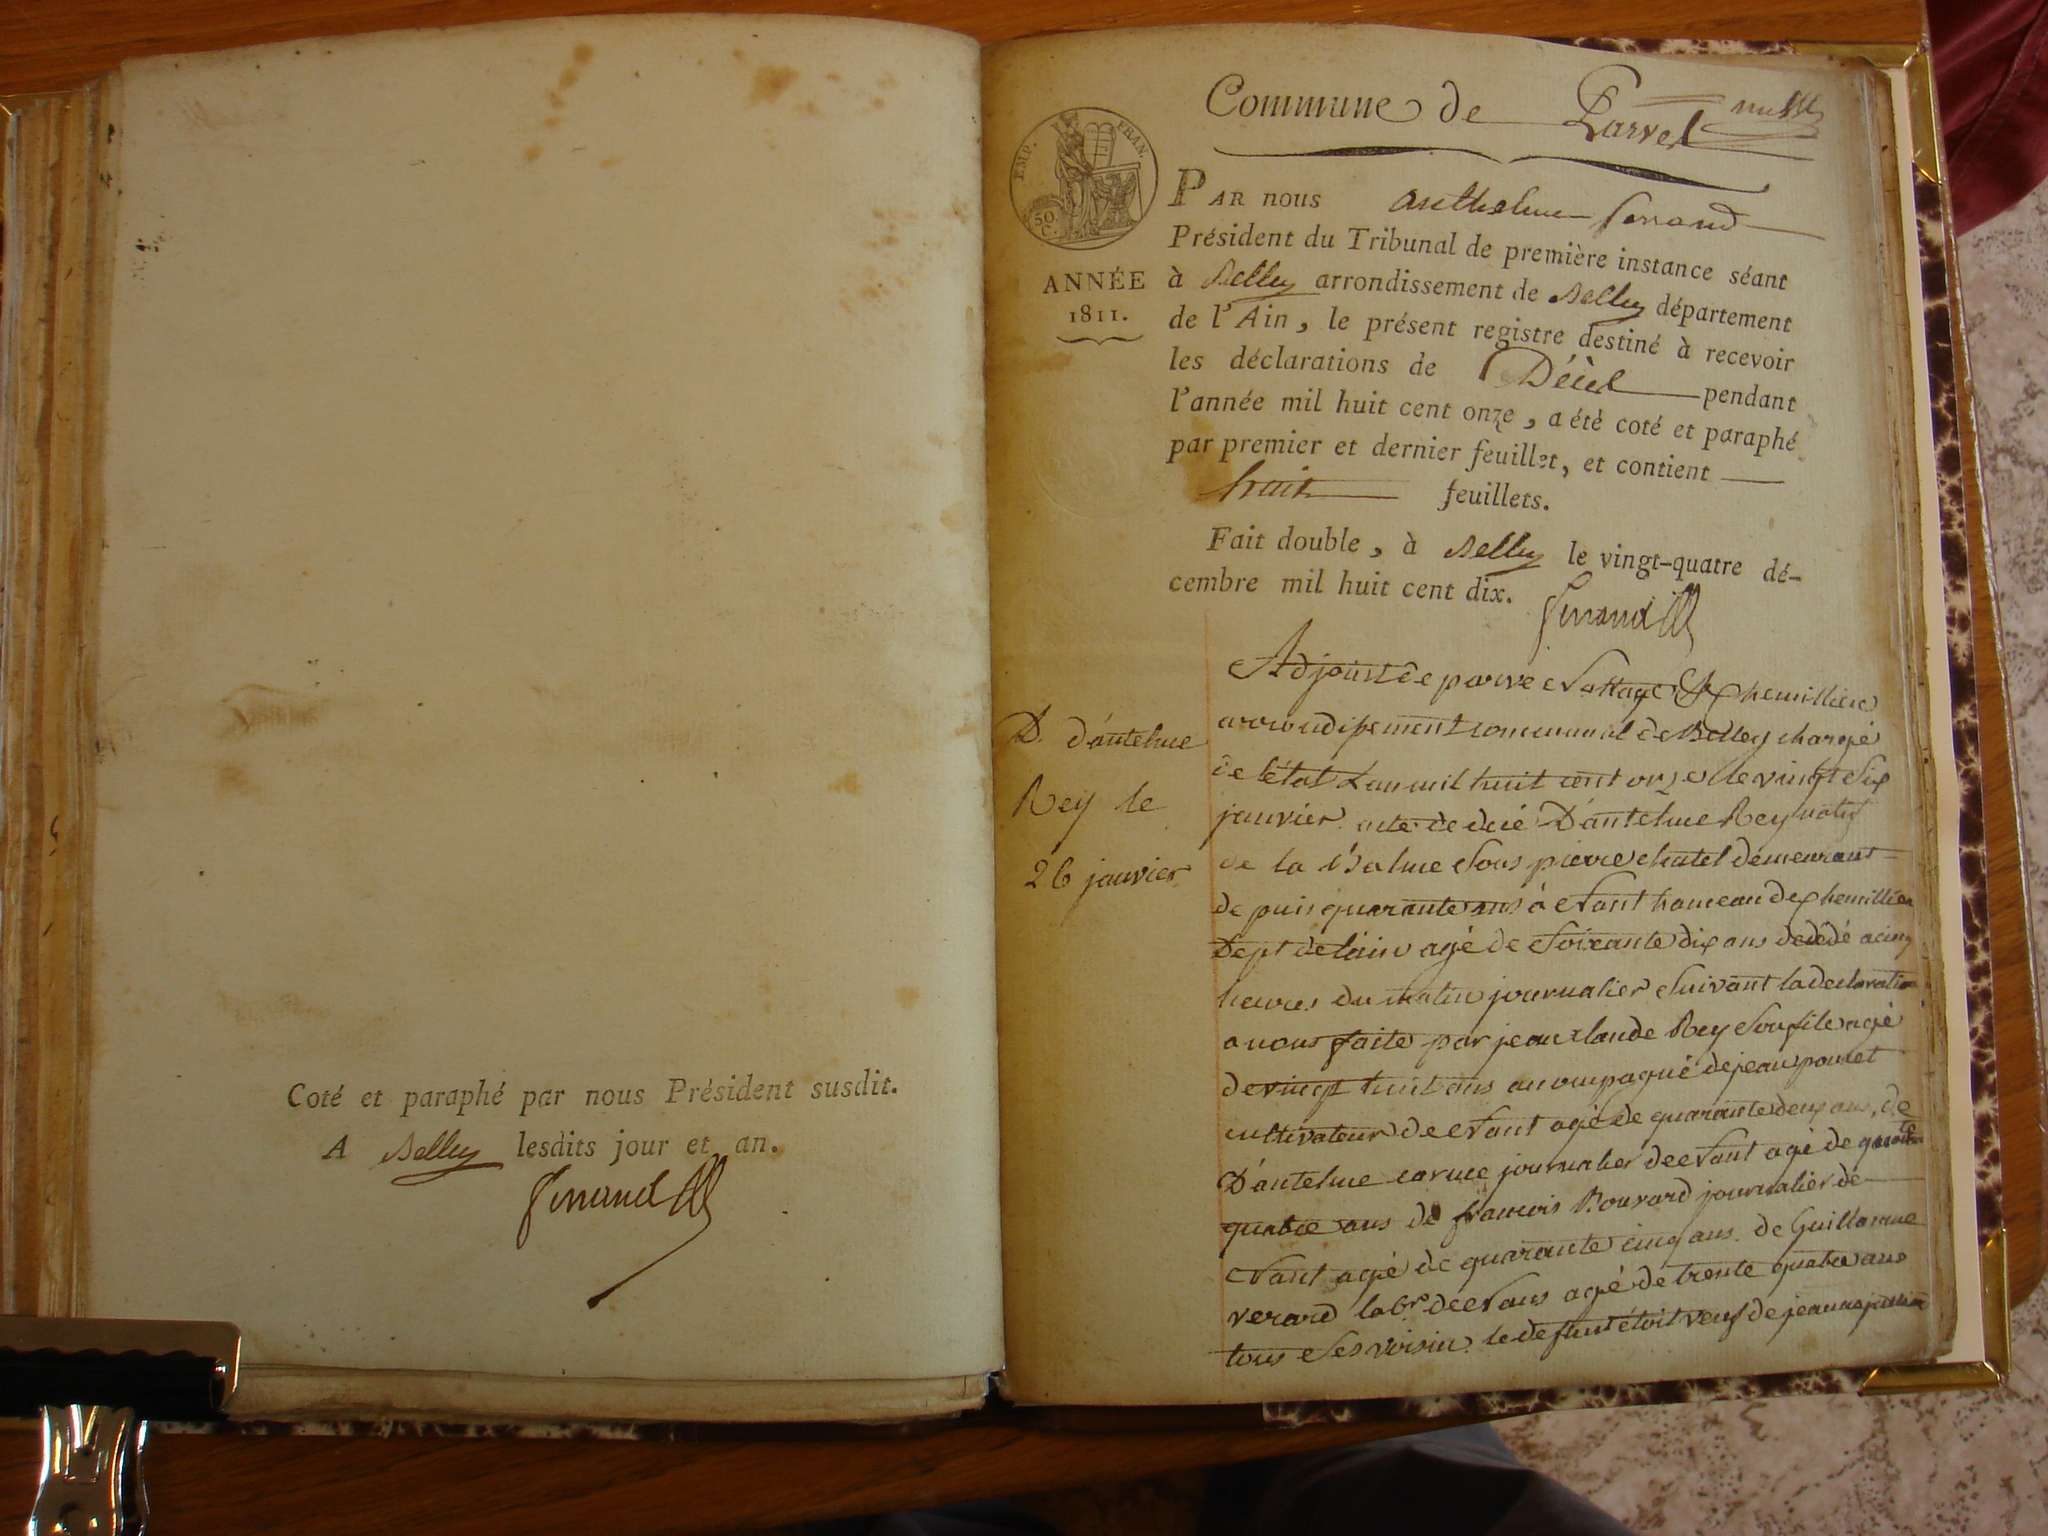 Coté et paraphé par nous Président susdit.
A Belley lesdits jour et an.
Ferrand
Commune de Parves
EMP. FRAN.
50 C.
ANNÉE
1811.
PAR nous Anthelme Ferrand
Président du Tribunal de première instance séant
à Belley arrondissement de Belley département
de l'Ain, le présent registre destiné à recevoir
les déclarations de Décès pendant
l'année mil huit cent onze, a été coté et paraphé
par premier et dernier feuillet, et contient
huit feuillets.
Fait double, à Belley le vingt-quatre dé-
cembre mil huit cent dix.
Ferrand
D. d'antelme
Rey le
26 janvier
Adjoint de parve Nattage & chemillieu
arrondissement communal de Belley chargé
de l'état L'an mil huit cent onze le vingt six
janvier acte de décé D'antelme Rey natif
de la Balme sous pierre chatel demeurant
de puis quarante ans à Nant hameau de chemillieu
Dept de lain agé de soixante dix ans décédé a cinq
heures du matin journalier suivant la declaration
a nous faite par jean claude Rey son fils agé
de vingt huit ans accompagné de jean
cultivateur de Nant agé de quarante deux ans, de
D'antelme journalier de Nant agé de quarante
quatre ans de francois Bouvard journalier de
Nant agé de quarante cinq ans de Guillaume
verard labr. de Nans agé de trente quatre ans
tous ses voisin le defunt étoit veuf de jeanne